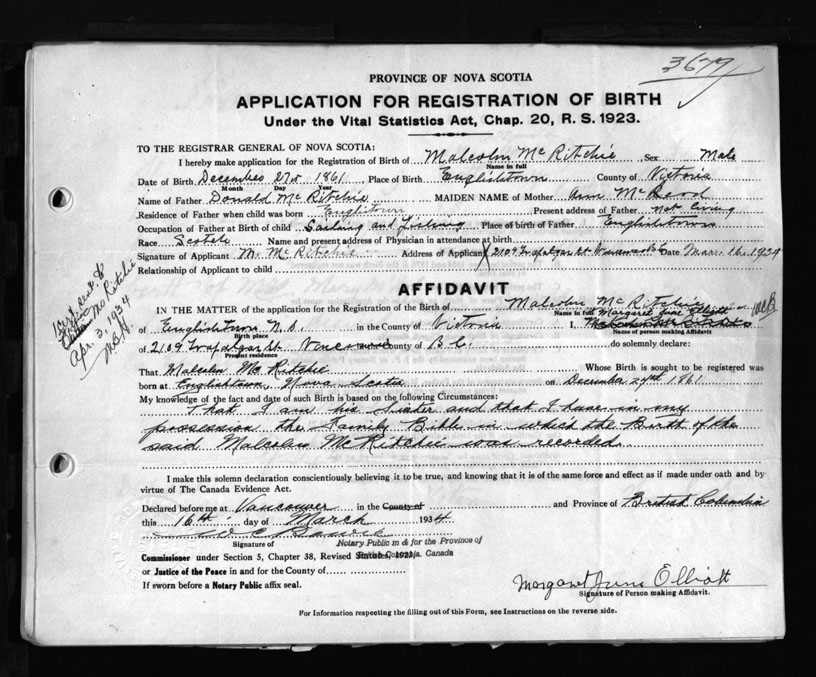 3677
PROVINCE OF NOVA SCOTIA
APPLICATION FOR REGISTRATION OF BIRTH
Under the Vital Statistics Act, Chap. 20, R. S. 1923.
TO THE REGISTRAR GENERAL OF NOVA SCOTIA:
I hereby make application for the Registration of Birth of Malcolm McRitchie Sex Male
Name in full
Date of Birth December 27th 1861 Place of Birth Englishtown County of Victoria
Month Day Year
Name of Father Donald McRitchie MAIDEN NAME of Mother Ann McLeod
Residence of Father when child was born Englitown Present address of Father not living
Occupation of Father at Birth of child Sailing and Fishing Place of birth of Father Englishtown
Race Scotch Name and present address of Physician in attendance at birth
Signature of Applicant M. McRitchie Address of Applicant 2109 Trafalgar St Vancouver B C Date Mar. 16. 1934
Relationship of Applicant to child
Cert sent to
McRitchie
Apr. 3, 1934
AFFIDAVIT
IN THE MATTER of the application for the Registration of the Birth of Malcolm McRitchie
Name in full Margaret June Elliott
of Englishtown N.S. in the County of Victoria I,
Birth place Name of person making Affidavit
of 2109 Trafalgar St Vancouver county of B C. do solemnly declare:
Present residence
That Malcolm McRitchie Whose Birth is sought to be registered was
born at Englishtown, Nova Scotia on December 27th 1861
My knowledge of the fact and date of such Birth is based on the following Circumstances:
That I am his Sister and that I have in my
possession the Family Bible in which the Birth of the
said Malcolm McRitchie was recorded.
I make this solemn declaration conscientiously believing it to be true, and knowing that it is of the same force and effect as if made under oath and by
virtue of The Canada Evidence Act.
Declared before me at Vancouver in the County of and Province of British Columbia
this 16th day of March 1934
Signature of Notary Public in & for the Province of
British Columbia, Canada
Commissioner under Section 5, Chapter 38, Revised Statutes, 1923,
or Justice of the Peace in and for the County of
If sworn before a Notary Public affix seal.
Margaret June Elliott
Signature of Person making Affidavit.
For Information respecting the filling out of this Form, see Instructions on the reverse side.